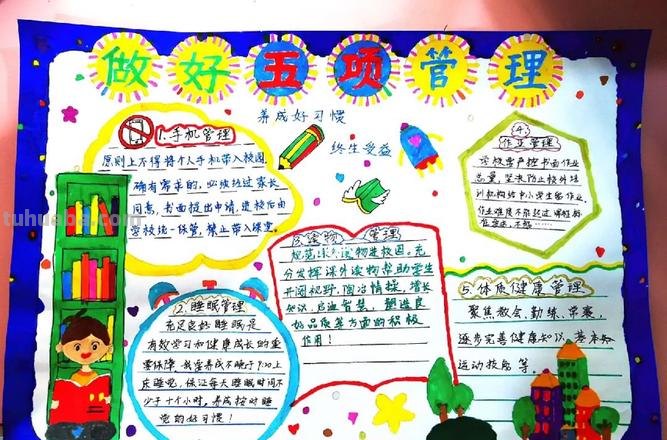 做好五项管理
养成好习惯
终生受益
1.手机管理
原则上不得将个人手机带入校园.
确有需求的,必须经过家长
同意、书面提出申请,进校后由
学校统一保管,禁止带入课堂.
2.睡眠管理
充足良好睡眠是
有效学习和健康成长的重
要保障,我要养成不晚于9:20上
床睡觉,保证每天睡眠时间不
少于十个小时,养成按时睡
觉的好习惯!
读物 管理
规范课外读物进校园,充
分发挥课外读物帮助学生
开阔视野,陶冶情操,增长
知识,启迪智慧,塑造良
好品质等方面的积极
作用!
4.
作业管理
学校要严控书面作业
总量,坚决防止校外培
训机构给中小学生留作业.
作业难度不能超过课程标
5.体质健康管理
聚焦教会、勤练、常赛,
逐步完善健康知识、基本
运动技能等.
tuhuaba.com